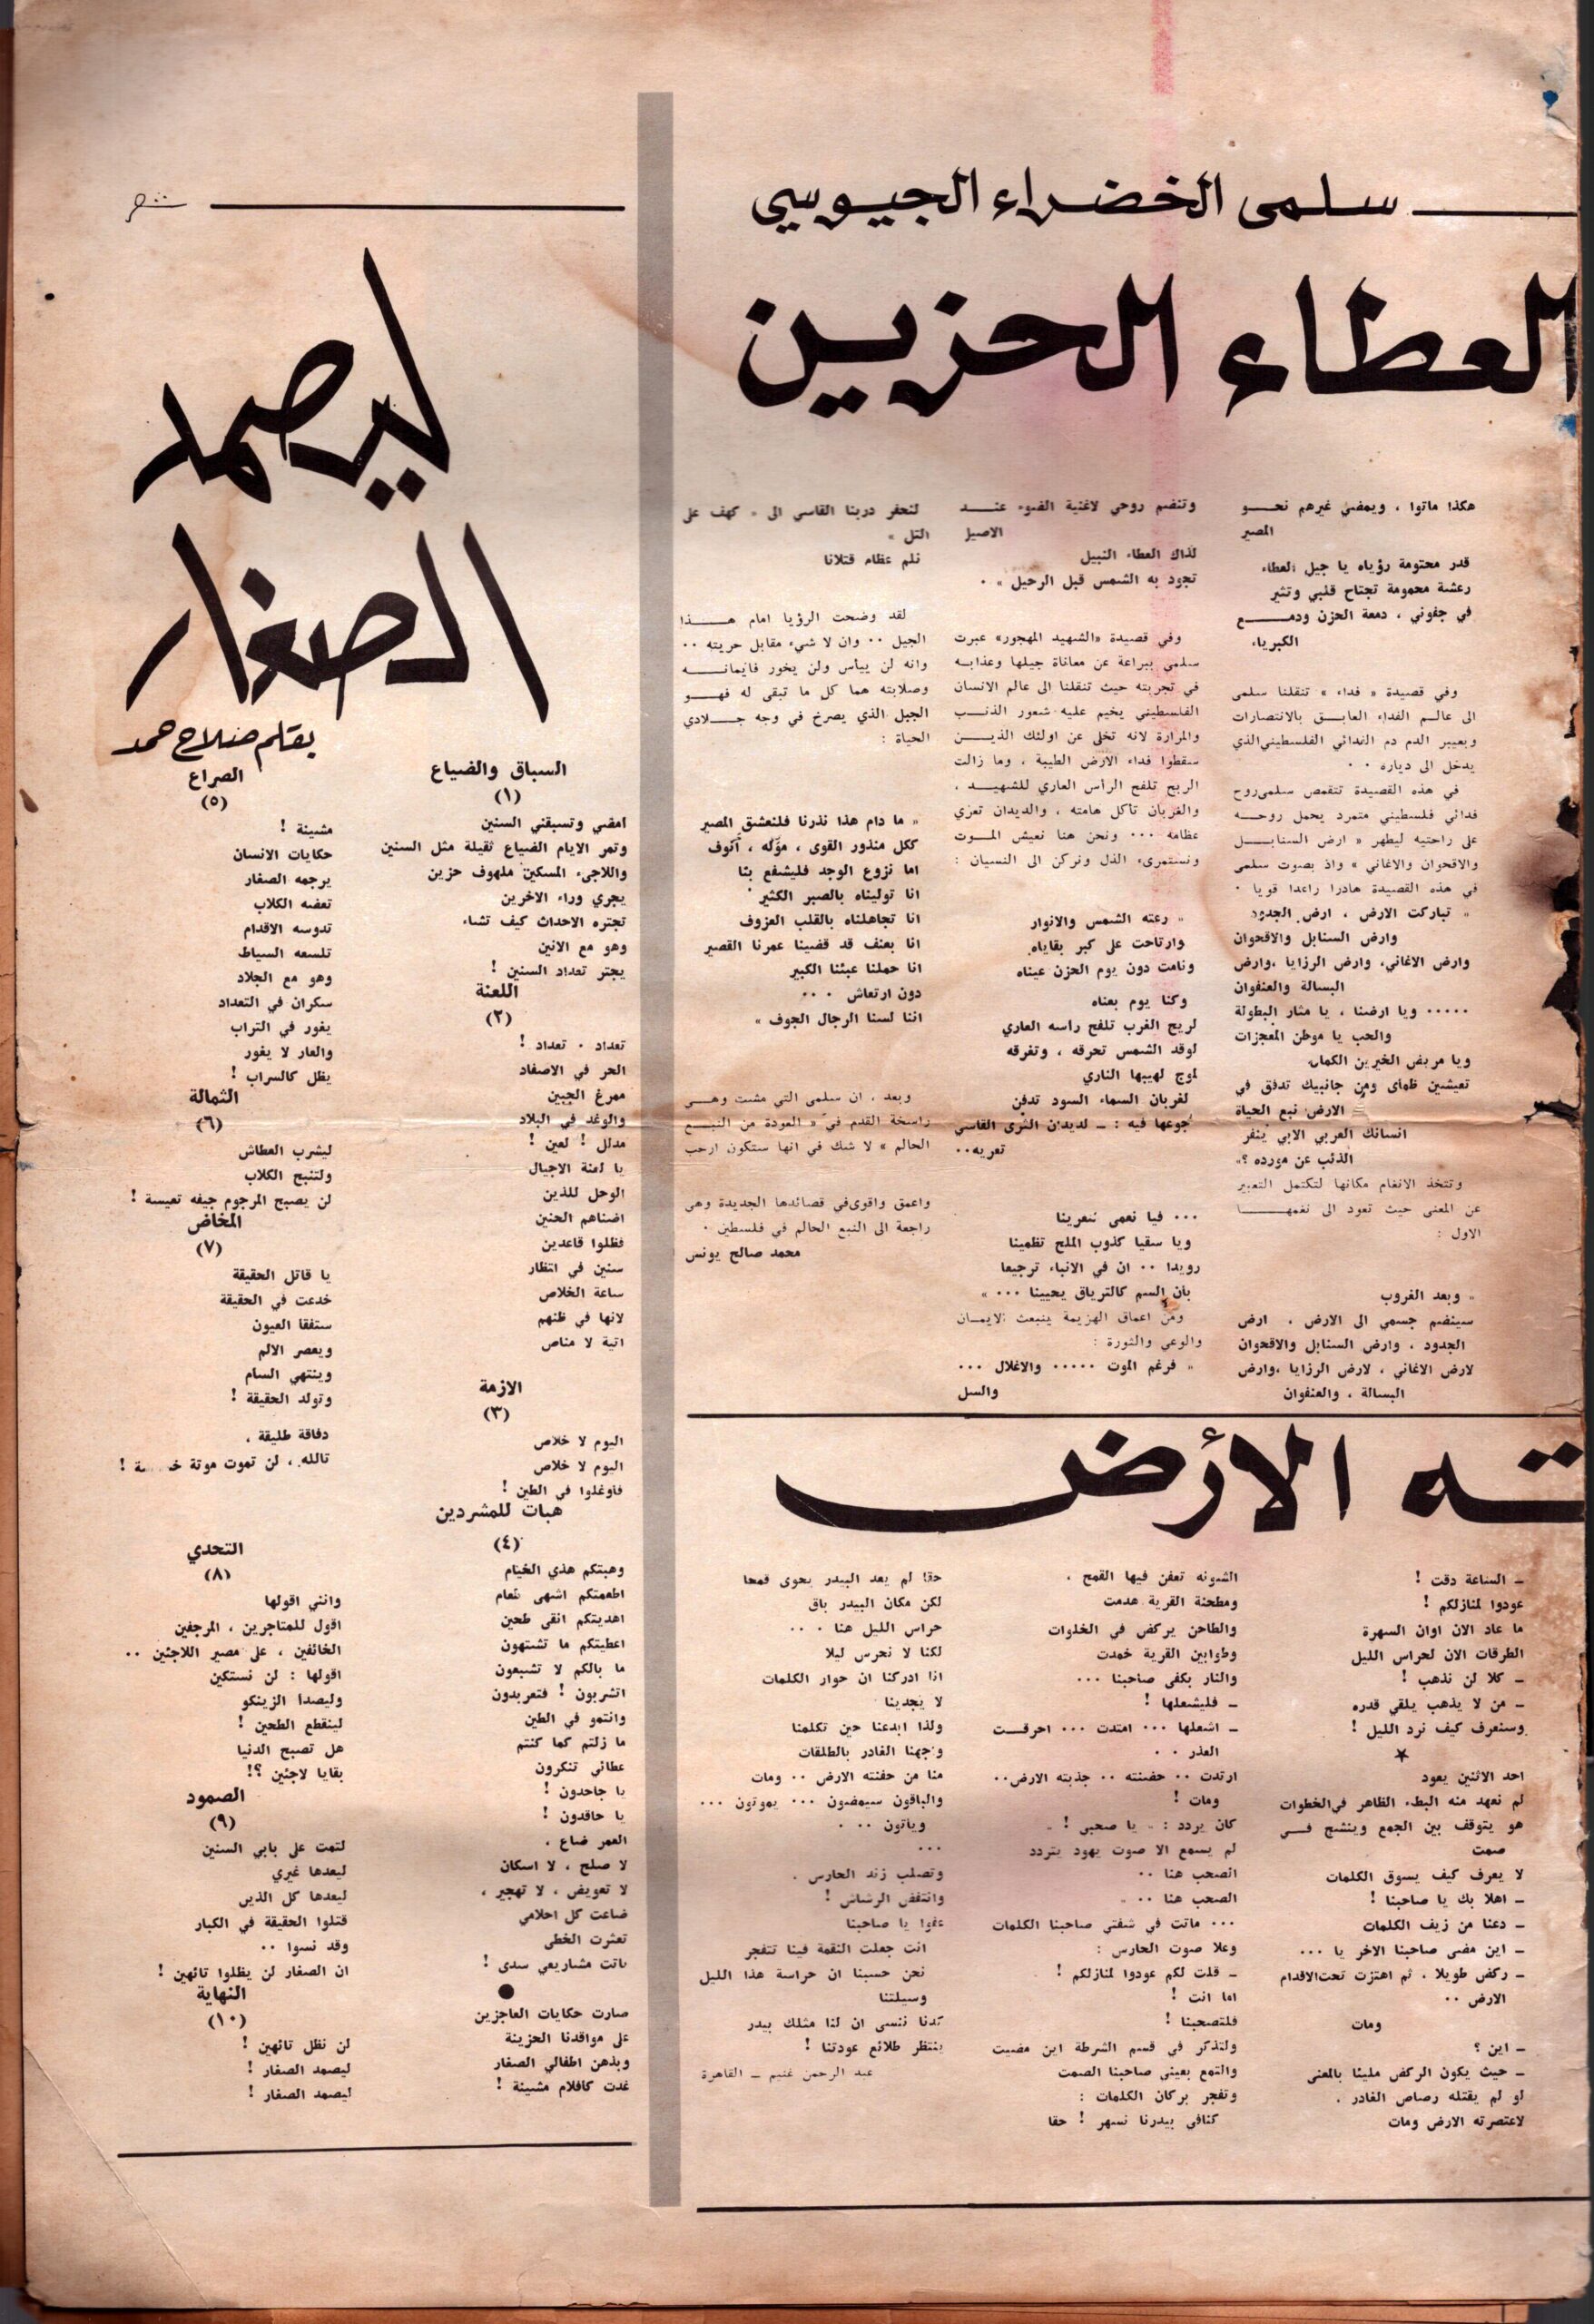 سلمى الخضراء الجيوسي
العطاء الحزين
هكذا ماتوا ، ويمضي غيرهم نحو
المصير
قدر محتومة رؤياه يا جيل العطاء
رعشة محمومة تجتاح قلبي وتثير
في جفوني ، دمعة الحزن ودمع
الكبرياء
وفي قصيدة « فداء » تنقلنا سلمى
الى عالم الفداء العابق بالانتصارات
وبعبير الدم دم الفدائي الفلسطيني الذي
يدخل الى دياره ٠٠
في هذه القصيدة تتقمص سلمى روح
فدائي فلسطيني متمرد يحمل روحه
على راحتيه ليطهر « ارض السنابل
والاقحوان والاغاني » واذ بصوت سلمى
في هذه القصيدة هادرا راعدا قويا ٠
« تباركت الارض ، ارض الجدود
وارض السنابل والاقحوان
وارض الاغاني، وارض الرزايا ،وارض
البسالة والعنفوان
٠٠٠٠٠ ويا ارضنا ، يا مثار البطولة
والحب يا موطن المعجزات
ويا مربض الخيرين الكماة
تعيشين ظمأى ومن جانبيك تدفق في
الارض نبع الحياة
انسانك العربي الابي ينفر
الذئب عن مورده ؟»
وتتخذ الانغام مكانها لتكتمل التعبير
عن المعنى حيث تعود الى نغمها
الاول :
« وبعد الغروب
سينضم جسمي الى الارض ، ارض
الجدود ، وارض السنابل والاقحوان
لارض الاغاني ، لارض الرزايا ،وارض
البسالة ، والعنفوان
وتنضم روحي لاغنية الضوء عند
الاصيل
لذاك العطاء النبيل
تجود به الشمس قبل الرحيل » ٠
وفي قصيدة «الشهيد المهجور» عبرت
سلمى ببراعة عن معاناة جيلها وعذابه
في تجربته حيث تنقلنا الى عالم الانسان
الفلسطيني يخيم عليه شعور الذنب
والمرارة لانه تخلى عن اولئك الذين
سقطوا فداء الارض الطيبة ، وما زالت
الريح تلفح الرأس العاري للشهيد ،
والغربان تأكل هامته ، والديدان تعري
عظامه ٠٠٠ ونحن هنا نعيش الموت
ونستمرىء الذل ونركن الى النسيان :
« رعته الشمس والانوار
وارتاحت على كبر بقاياه
ونامت دون يوم الحزن عيناه
وكنا يوم بعناه
لريح الغرب تلفح راسه العاري
لوقد الشمس تحرقه ، وتغرقه
لموج لهيبها الناري
لغربان السماء السود تدفن
جوعها فيه : ـ لديدان الثرى القاسي
تعريه٠٠
٠٠٠ فيا نعمى تعرينا
ويا سقيا كذوب الملح تظمينا
رويدا ٠٠ ان في الانباء ترجيعا
بأن السم كالترياق يحيينا ٠٠٠ »
ومن اعماق الهزيمة ينبعث الايمان
والوعي والثورة :
« فرغم الموت ٠٠٠٠٠ والاغلال ٠٠٠
والسل
لنحفر دربنا القاسي الى « كهف على
التل »
نلم عظام قتلانا
لقد وضحت الرؤيا امام هذا
الجيل ٠٠ وان لا شيء مقابل حريته ٠٠
وانه لن ييأس ولن يخور فايمانه
وصلابته هما كل ما تبقى له فهو
الجيل الذي يصرخ في وجه جلادي
الحياة :
« ما دام هذا نذرنا فلنعشق المصير
ككل منذور القوى ، مؤله ، أنوف
اما نزوع الوجد فليشفع بنا
انا توليناه بالصبر الكثير
انا تجاهلناه بالقلب العزوف
انا بعنف قد قضينا عمرنا القصير
انا حملنا عبئنا الكبير
دون ارتعاش ٠٠٠
اننا لسنا الرجال الجوف »
وبعد ، ان سلمى التي مشت وهي
راسخة القدم في « العودة من النبع
الحالم » لا شك في انها ستكون ارحب
واعمق واقوى في قصائدها الجديدة وهي
راجعة الى النبع الحالم في فلسطين ٠
محمد صالح يونس
ته الأرض
ـ الساعة دقت !
عودوا لمنازلكم !
ما عاد الان اوان السهرة
الطرقات الان لحراس الليل
ـ كلا لن نذهب !
ـ من لا يذهب يلقي قدره
وسنعرف كيف نرد الليل !
★
احد الاثنين يعود
لم نعهد منه البطء الظاهر في الخطوات
هو يتوقف بين الجمع وينشج في
صمت
لا يعرف كيف يسوق الكلمات
ـ اهلا بك يا صاحبنا !
ـ دعنا من زيف الكلمات
ـ اين مضى صاحبنا الاخر يا ٠٠٠
ـ ركض طويلا ، ثم اهتزت تحت الاقدام
الارض ٠٠
ومات
ـ اين ؟
ـ حيث يكون الركض مليئا بالمعنى
لو لم يقتله رصاص الغادر ،
لاعتصرته الارض ومات
الشونه تعفن فيها القمح ،
ومطحنة القرية هدمت
والطاحن يركض في الخلوات
وطوابين القرية خمدت
والنار بكفى صاحبنا ٠٠٠
ـ فليشعلها !
ـ اشعلها ٠٠٠ امتدت ٠٠٠ احرقت
الغدر ٠٠
ارتدت ٠٠ حضنته ٠٠ جذبته الارض٠٠
ومات !
كان يردد : « يا صحبي ! »
لم يسمع الا صوت يهود يتردد
الصحب هنا ٠٠
الصحب هنا ٠٠ »
٠٠٠ ماتت في شفتي صاحبنا الكلمات
وعلا صوت الحارس :
ـ قلت لكم عودوا لمنازلكم !
اما انت !
فلتصحبنا !
ولتذكر في قسم الشرطة اين مضيت
والتمع بعيني صاحبنا الصمت
وتفجر بركان الكلمات :
كنا في بيدرنا نسهر ! حقا
حقا لم يعد البيدر يحوى قمحا
لكن مكان البيدر باق
حراس الليل هنا ٠٠٠
لكنا لا نحرس ليلا
اذا ادركنا ان حوار الكلمات
لا يجدينا
ولذا ابدعنا حين تكلمنا
وجهنا الغادر بالطلقات
منا من حضنته الارض ٠٠ ومات
والباقون سيمضون ٠٠٠ يموتون ٠٠٠
وياتون ٠٠٠
٠٠٠
وتصلب زند الحارس ،
وانتفض الرشاش !
عفوا يا صاحبنا
انت جعلت النقمة فينا تتفجر
نحن حسبنا ان حراسة هذا الليل
وسيلتنا
كدنا ننسى ان لنا مثلك بيدر
ينتظر طلائع عودتنا !
عبد الرحمن غنيم ـ القاهرة
ليصمد
الصغار
بقلم صلاح حمد
السباق والضياع
(١)
امضي وتسبقني السنين
وتمر الايام الضياع ثقيلة مثل السنين
واللاجىء المسكين ملهوف حزين
يجري وراء الاخرين
تجتره الاحداث كيف تشاء
وهو مع الانين
يجتر تعداد السنين !
اللعنة
(٢)
تعداد ٠ تعداد !
الحر في الاصفاد
ممرغ الجبين
والوغد في البلاد
مدلل ! لعين !
يا لعنة الاجيال
الوحل للذين
اضناهم الحنين
فظلوا قاعدين
سنين في انتظار
ساعة الخلاص
لانها في ظنهم
اتية لا مناص
الازمة
(٣)
اليوم لا خلاص
اليوم لا خلاص
فأوغلوا في الطين !
هبات للمشردين
(٤)
وهبتكم هذي الخيام
اطعمتكم اشهى طعام
اهديتكم انقى طحين
اعطيتكم ما تشتهون
ما بالكم لا تشبعون
اتشربون ! فتعربدون
وانتمو في الطين
ما زلتم كما كنتم
عطائي تنكرون
يا جاحدون !
يا حاقدون !
العمر ضاع ،
لا صلح ، لا اسكان
لا تعويض ، لا تهجير ،
ضاعت كل احلامي
تعثرت الخطى
باتت مشاريعي سدى !
●
صارت حكايات العاجزين
على مواقدنا الحزينة
وبذهن اطفالي الصغار
غدت كافلام مشينة !
الصراع
(٥)
مشينة !
حكايات الانسان
يرجمه الصغار
تعضه الكلاب
تدوسه الاقدام
تلسعه السياط
وهو مع الجلاد
سكران في التعداد
يغور في التراب
والعار لا يغور
يظل كالسراب !
الثمالة
(٦)
ليشرب العطاش
ولتنبح الكلاب
لن يصبح المرجوم جيفه تعيسة !
المخاض
(٧)
يا قاتل الحقيقة
خدعت في الحقيقة
ستفقا العيون
ويعصر الالم
وينتهي السام
وتولد الحقيقة !
دفاقة طليقة ،
تالله ، لن تموت موتة
التحدي
(٨)
وانني اقولها
اقول للمتاجرين ، المرجفين
الخائفين ، على مصير اللاجئين ٠٠
اقولها : لن نستكين
وليصدا الزينكو
لينقطع الطحين !
هل تصبح الدنيا
بقايا لاجئين ؟!
الصمود
(٩)
لتمت على بابي السنين
ليعدها غيري
ليعدها كل الذين
قتلوا الحقيقة في الكبار
وقد نسوا ٠٠
ان الصغار لن يظلوا تائهين !
النهاية
(١٠)
لن نظل تائهين !
ليصمد الصغار !
ليصمد الصغار !